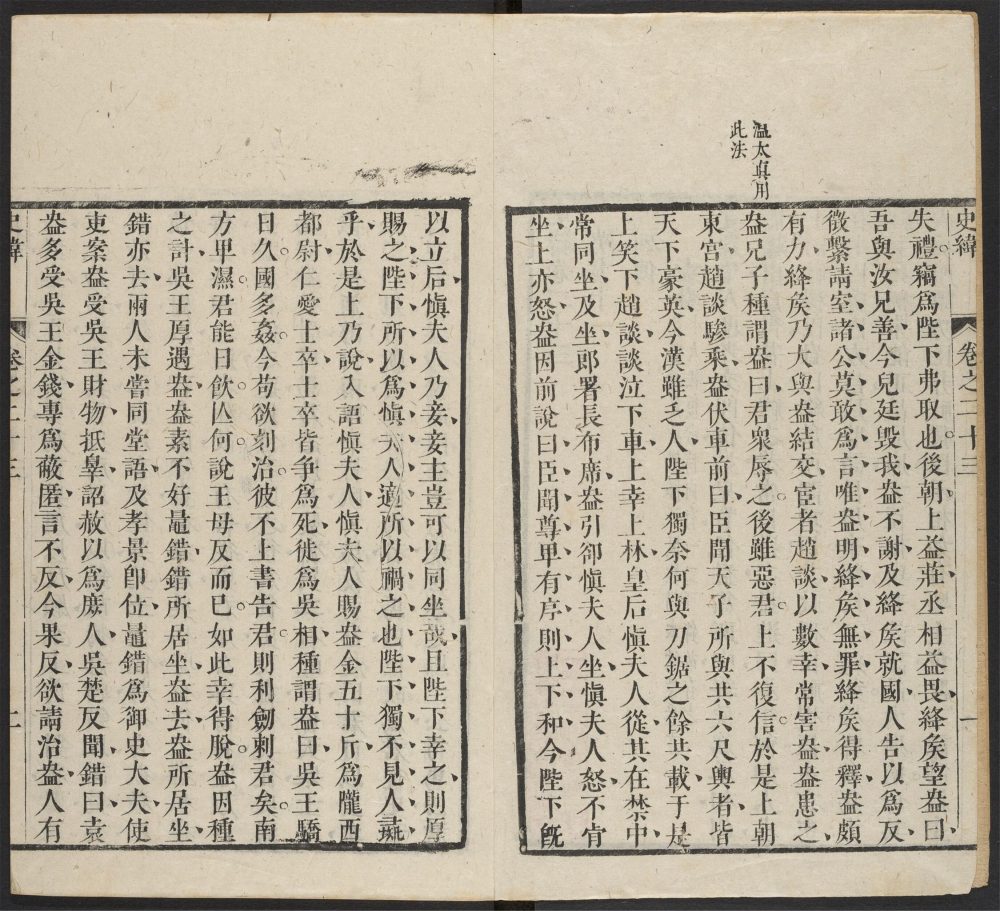 温太真用
此法
史緯
卷之二十三
一
失禮竊爲陛下弗取也後朝上益莊丞相益畏絳矦望盎曰
吾與汝兄善今兒廷毀我盎不謝及絳矦就國人告以爲反
徵繫請室諸公莫敢爲言唯盎明絳矦無罪絳矦得釋盎頗
有力絳矦乃大與盎結交宦者趙談以數幸常害盎盎患之
盎兄子種謂盎曰君衆辱之後雖惡君上不復信於是上朝
東宫趙談驂乘盎伏車前曰臣聞天子所與共六尺輿者皆
天下豪英今漢雖乏人陛下獨奈何與刀鋸之餘共載于是
上笑下趙談談泣下車上幸上林皇后愼夫人從其在禁中
常同坐及坐郎署長布席盎引卻愼夫人坐愼夫人怒不肯
坐上亦怒盎因前說曰臣聞尊卑有序則上下和今陛下旣
以立后愼夫人乃妾妾主豈可以同坐哉且陛下幸之則厚
賜之陛下所以爲愼夫人適所以禍之也陛下獨不見人彘
乎於是上乃說入語愼夫人愼夫人賜盎金五十斤爲隴西
都尉仁愛士卒士卒皆争爲死徙爲吳相種謂盎曰吳王驕
日久國多姦今苟欲刻治彼不上書告君則利劍刺君矣南
方卑濕君能日飲亾何說王母反而已如此幸得脫盎因種
之計吳王厚遇盎盎素不好鼂錯錯所居坐盎去盎所居坐
錯亦去兩人未嘗同堂語及孝景卽位鼂錯爲御史大夫使
吏案盎受吳王財物抵辠詔赦以爲庶人吳楚反聞錯曰袁
盎多受吳王金錢專爲蔽匿言不反今果反欲請治盎人有
史緯
卷之二十三